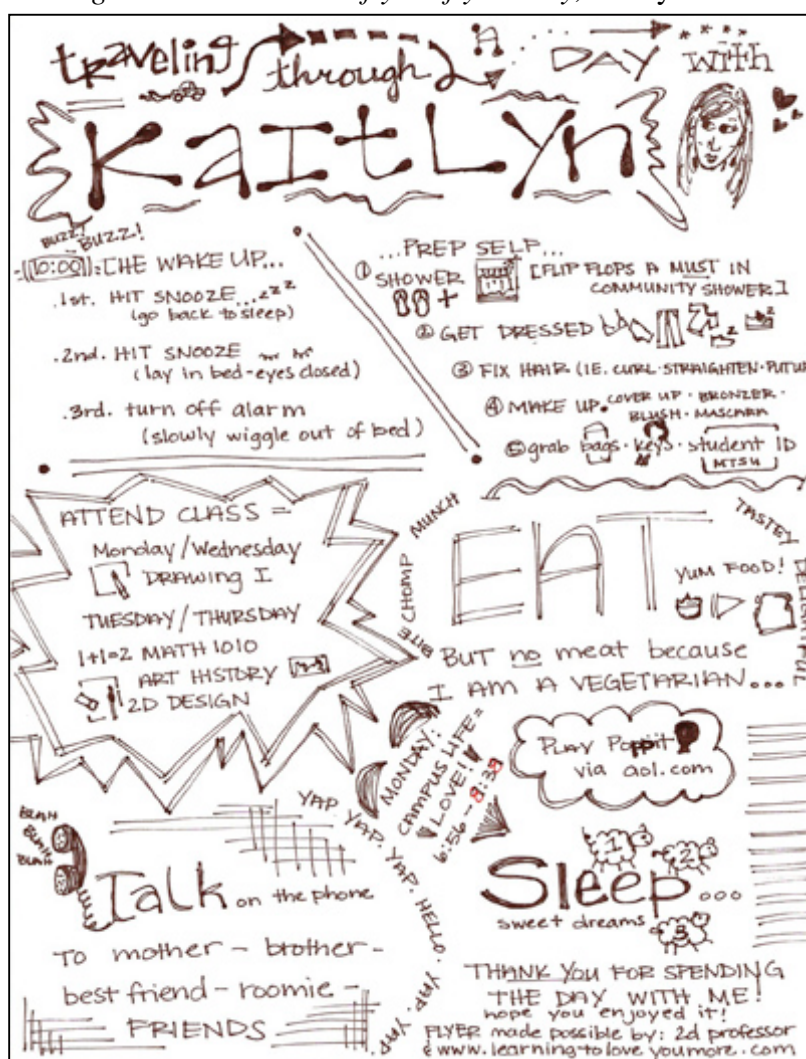 traveling through A DAY with
KaitLyn
BUZZ! BUZZ!
10:00 THE WAKE UP...
.1st. HIT SNOOZE...zzz
(go back to sleep)
.2nd. HIT SNOOZE
(lay in bed-eyes closed)
.3rd. turn off alarm
(slowly wiggle out of bed)
...PREP SELF...
① SHOWER + [FLIP FLOPS A MUST IN
COMMUNITY SHOWER]
② GET DRESSED
③ FIX HAIR (IE. CURL·STRAIGHTEN·
④ MAKE UP. COVER UP · BRONZER ·
BLUSH · MASCARA
⑤ grab bags · keys · student ID
MTSU
ATTEND CLASS =
Monday/Wednesday
DRAWING I
TUESDAY/THURSDAY
1+1=2 MATH 1010
ART HISTORY
2D DESIGN
BITE CHOMP MUNCH
EAT
TASTEY
YUM FOOD!
BUT no meat because
I AM A VEGETARIAN...
MONDAY:
CAMPUS LIFE =
LOVE!
PLAY Poppit
via aol.com
BLAH
BLAH
BLAH
Talk on the phone
TO mother - brother -
best friend - roomie -
FRIENDS
YAP. YAP. YAP. HELLO. YAP. YAP.
1 2 3
Sleep...
sweet dreams
THANK YOU FOR SPENDING
THE DAY WITH ME!
hope you enjoyed it!
FLYER made possible by: 2d professor
& www.learningtoloveyoumore.com